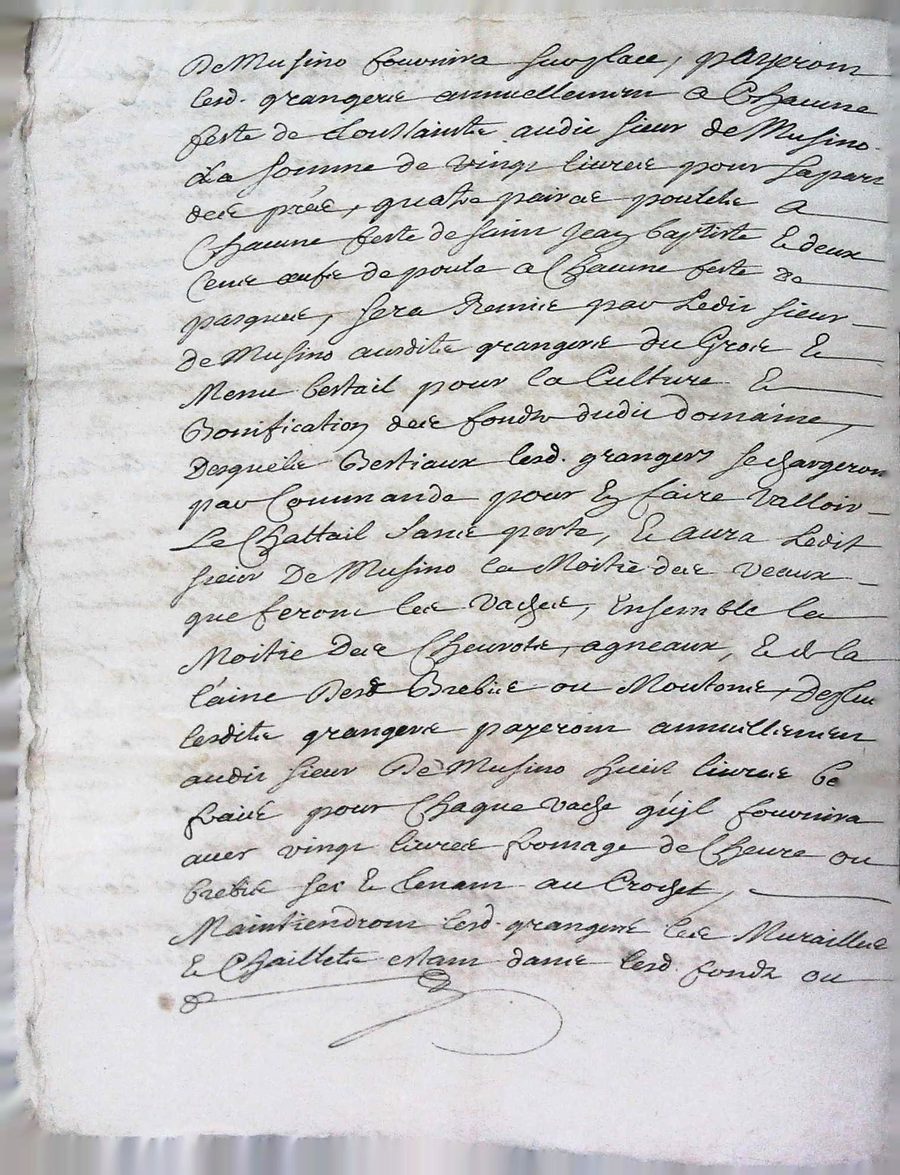 De Musino fournira sur place, payeront
lesd. grangers annuellement a Chacune
feste de Toussaints audit sieur de Musino
La somme de vingt livres pour sa part
des prés, quatre paires poulets a
Chacune feste de saint Jean baptiste & deux
Cents œufs de poule a Chacune feste de
pasques, sera Remis par Ledit sieur
de Musino ausdits grangers du Gros &
Menu bestail pour la Culture &
Bonification des fonds dudit Domaine,
Desquels Bestiaux lesd. grangers se chargeront
par Commande pour En faire Valloir
Le Chattail sans perte, & aura Ledit
sieur De Musino la Moitié des veaux
que feront les Vaches, Ensemble la
Moitié Des Chevrots, agneaux, & de la
laine Desd Brebis ou Moutons, De plus
lesdits grangers payeront annuellement
audit sieur De Musino huit livres be
fraix pour Chaque vache qu'jl fournira
avec vingt livres fromage de Chevre ou
brebis sec & tenant au Crochet,
Maintiendront lesd. grangers les Murailles
& Chaillets estant dans lesd. fonds ou